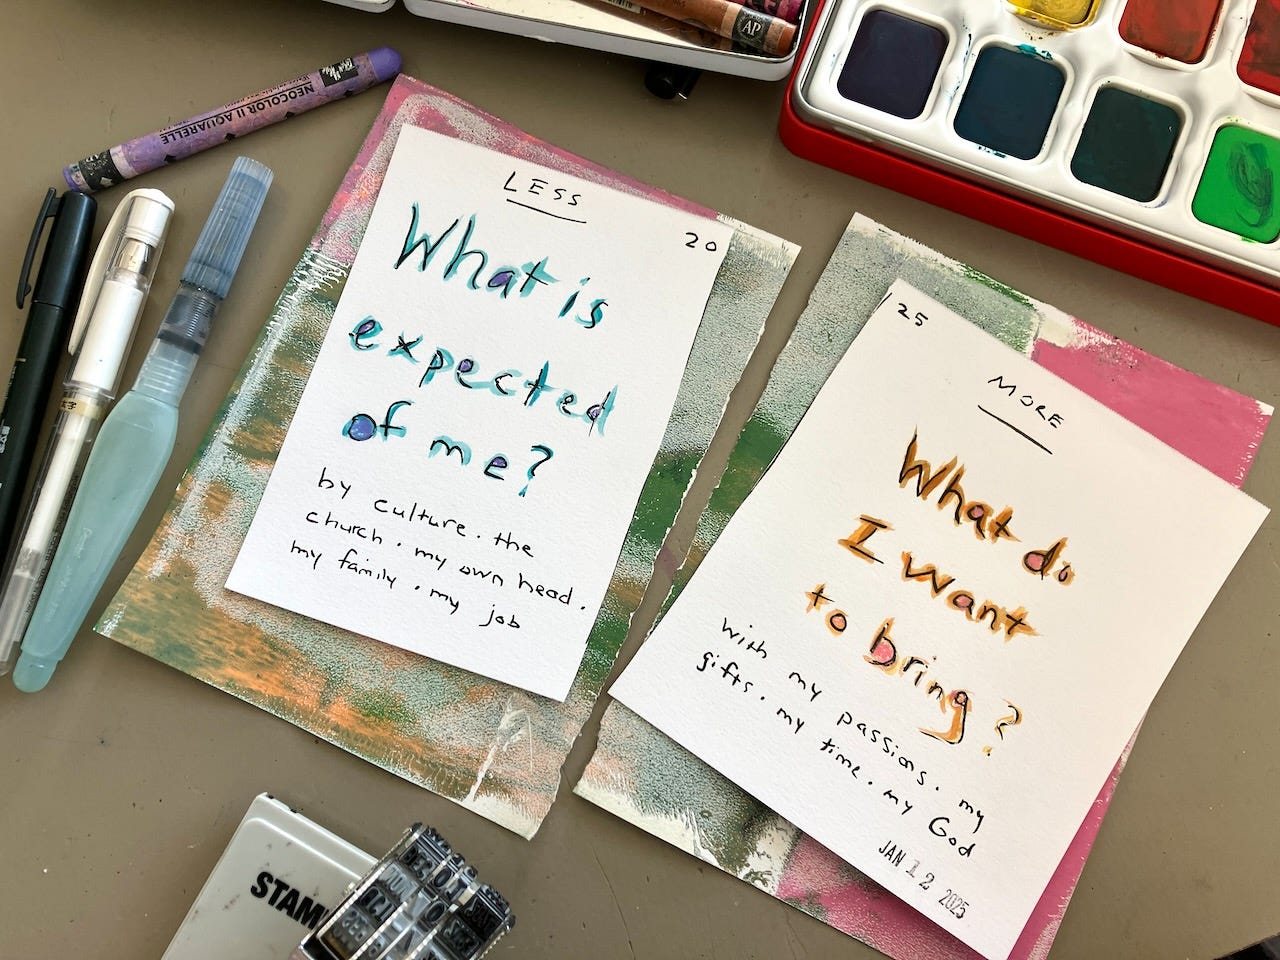 AP
NEOCOLOR II AQUARELLE
LESS
20
What is
expected
of me?
by culture. the
church. my own head.
my family. my job
/25
MORE
What do
I want
to bring?
with my passions. my
gifts. my time. my God
JAN 12 2025
STAM